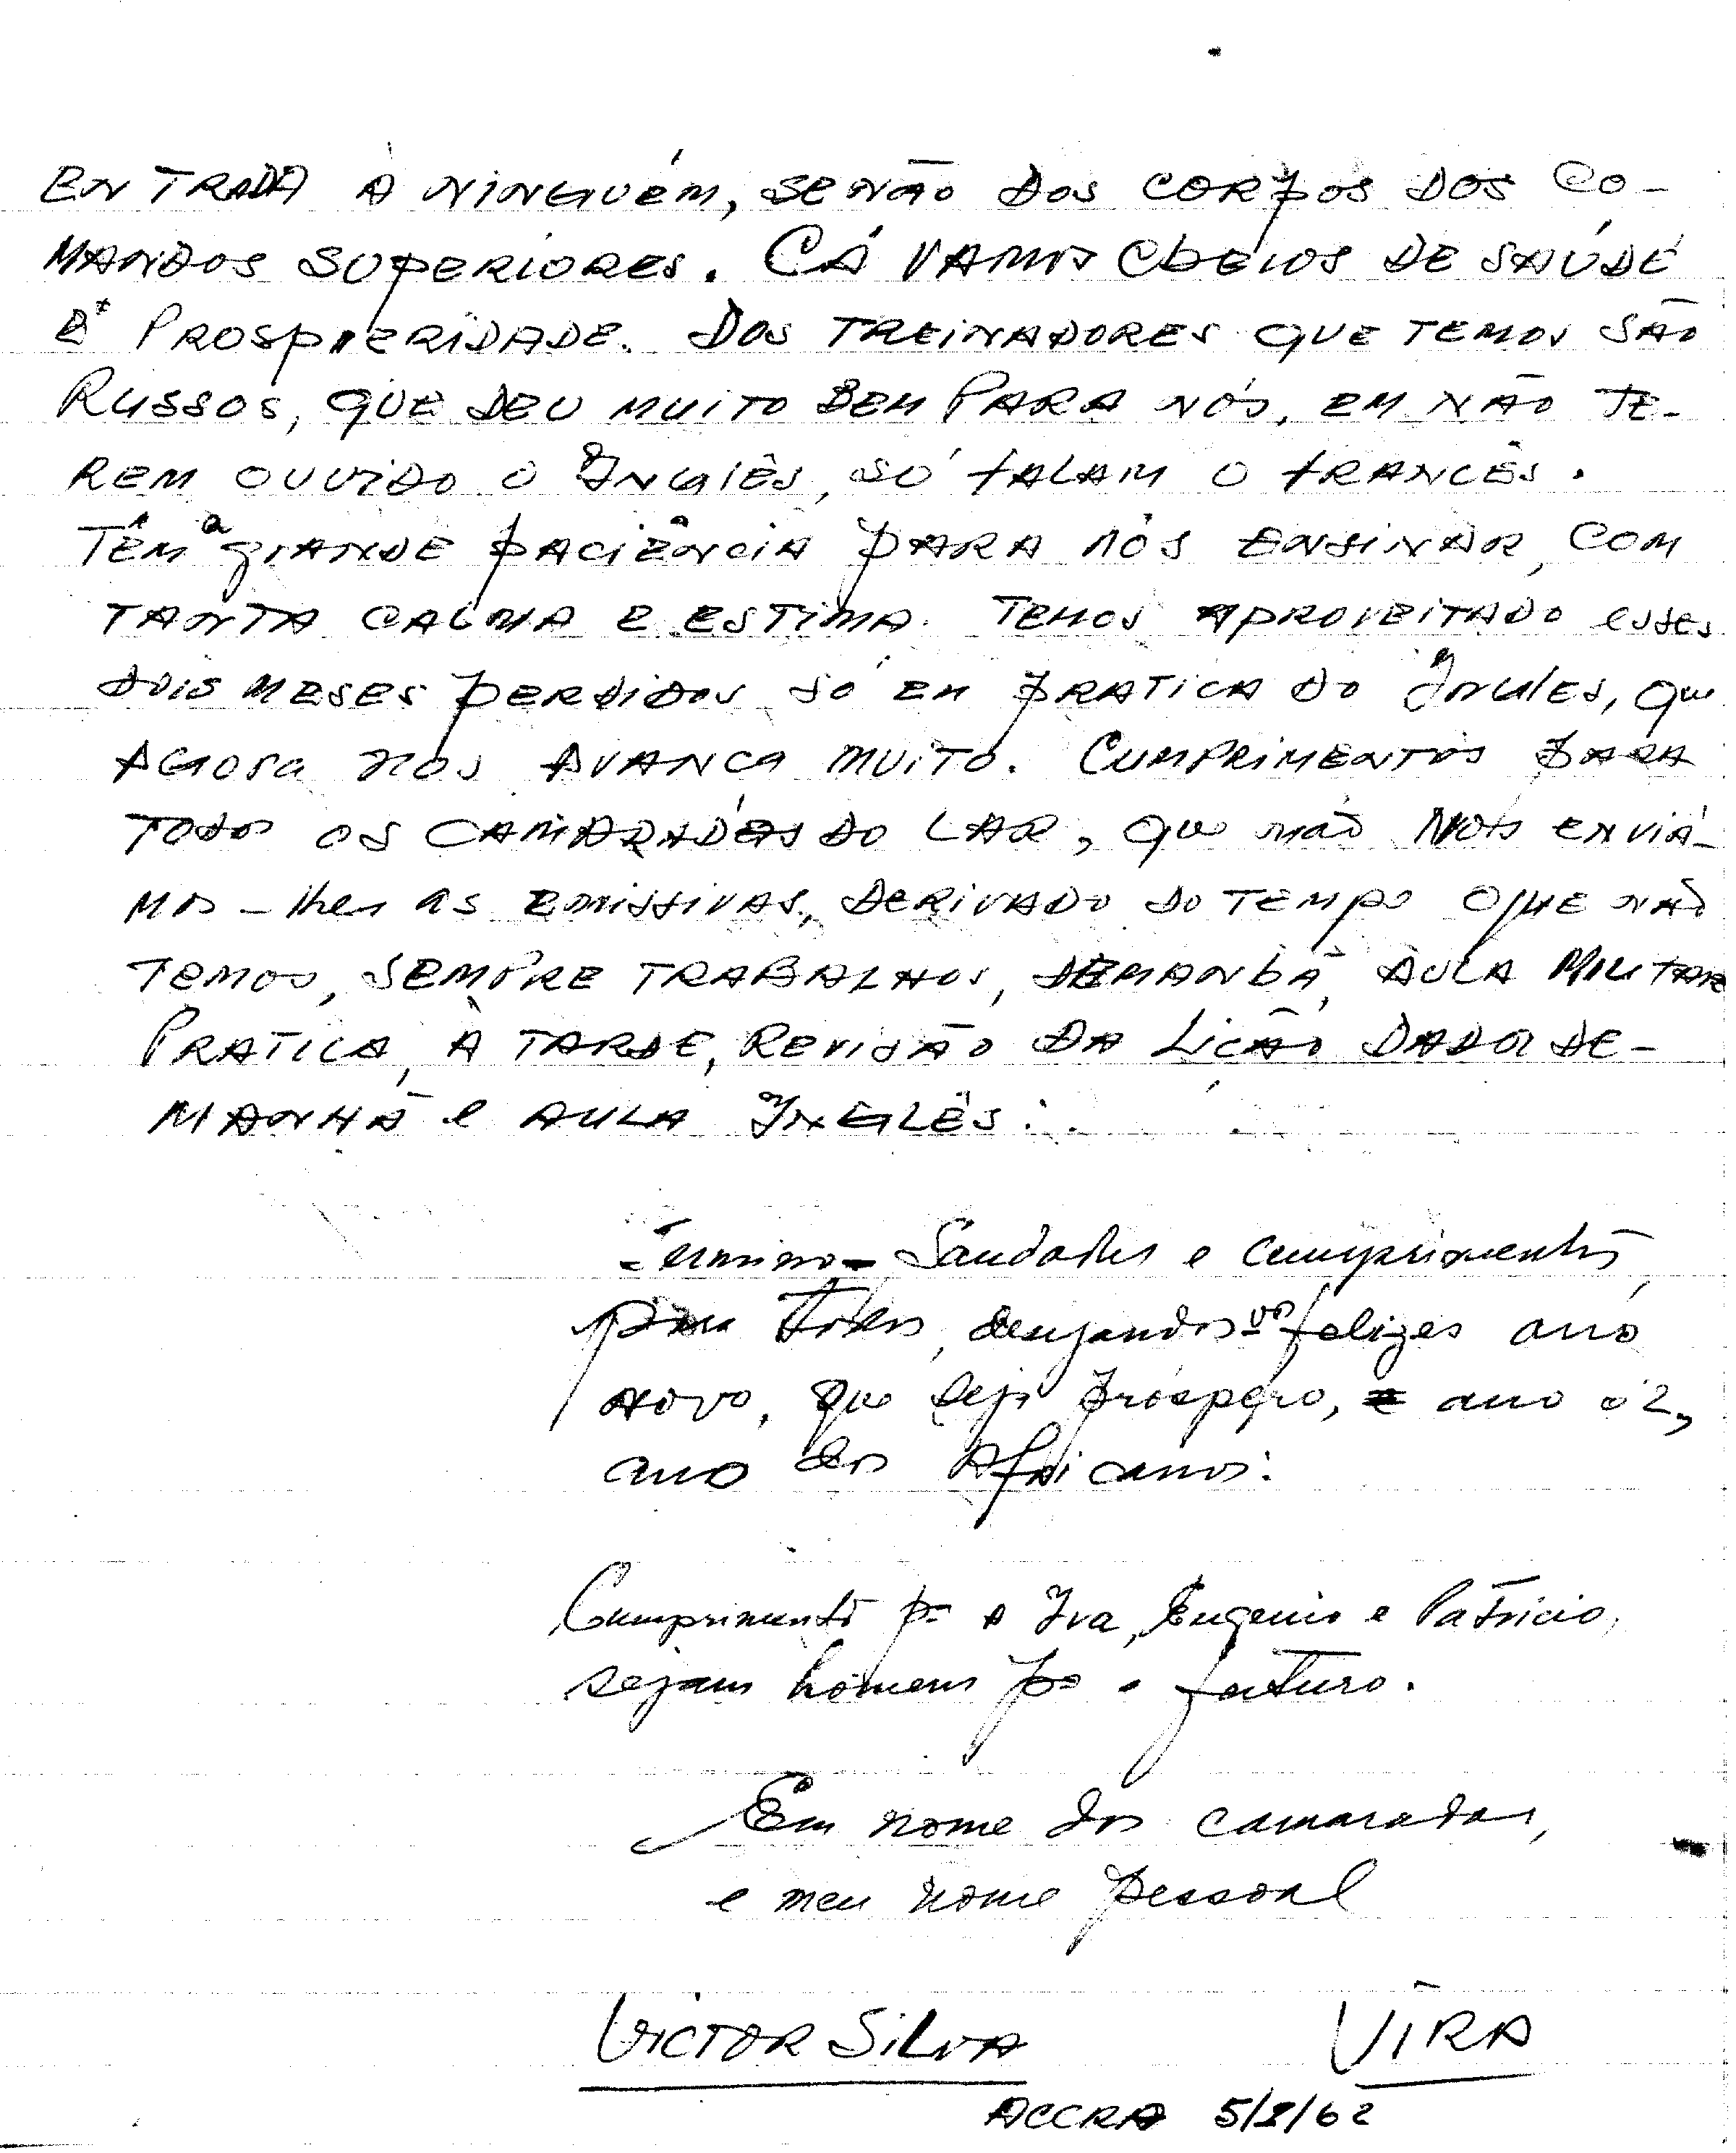 ENTRADA A NINGUÉM, SENÃO DOS CORPOS DOS CO-
MANDOS SUPERIORES. CÁ VAMOS CHEIOS DE SAÚDE
E PROSPERIDADE. DOS TREINADORES QUE TEMOS SÃO
RUSSOS, QUE DEU MUITO BEM PARA NÓS, EM NÃO TE-
REM OUVIDO O INGLÊS, SÓ FALAM O FRANCÊS.
TÊM a GRANDE PACIÊNCIA PARA NOS ENSINAR, COM
TANTA CALMA E ESTIMA. TEMOS APROVEITADO esses
DOIS MESES PERDIDOS SÓ EM PRATICA DO INGLES, que
AGORA NOS AVANCA MUITO. CUMPRIMENTOS PARA
TODOS OS CAMARADAS DO LAR, que não Nós ENVIÁ-
MOS-lhes AS EMISSIVAS, DERIVADO DO TEMPO QUE NÃO
TEMOS, SEMPRE TRABALHOS, DEMANHÃ, AULA MILITAR
PRATICA, À TARDE, REVISÃO DA LIÇÃO DADA DE-
MANHÃ e AULA INGLÊS:.
Termino - Saudades e cumprimentos,
para todos, desejandos-vos felizes ano
novo, que seja próspero, ano 62,
ano dos Africanos.
Cumprimento pa a Iva, Eugenio e Patrício,
sejam homens pa o futuro.
Em nome dos camaradas,
e meu nome pessoal
VICTOR SILVA VIRA
ACCRA 5/2/62